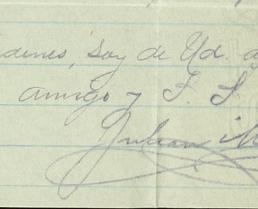 denes, soy de Ud. a
amigo y S. S.
Julian M